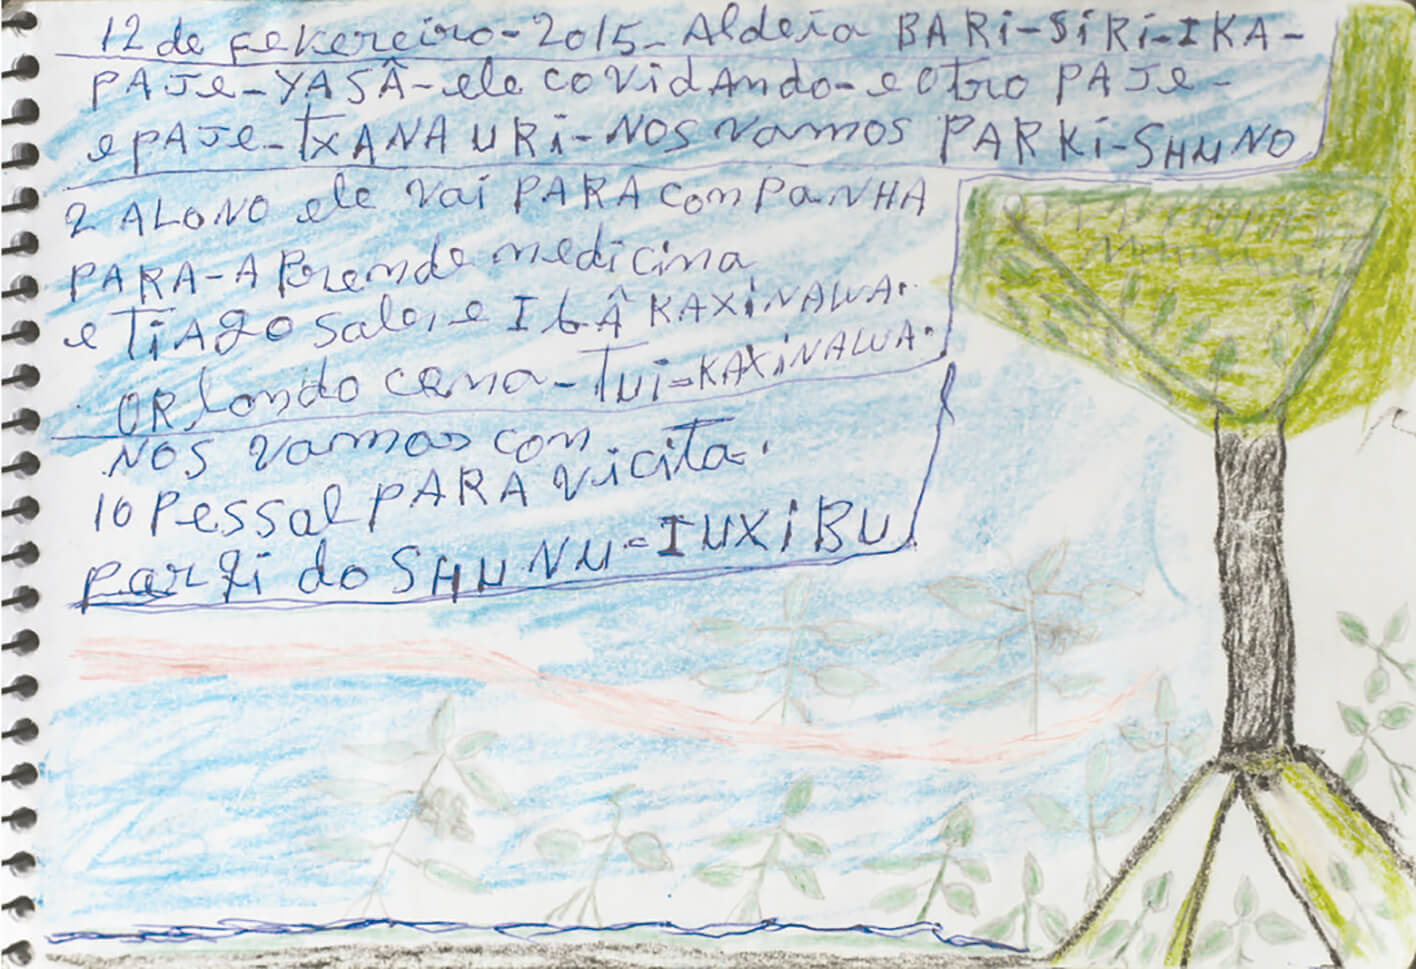 12 de fevereiro-2015-Aldeia BARi-SiRi-IKA-
PAJE-YASÂ-ele coVidANdo-e otro PAJE-
e PAJE-TXANA URi-NOS vamos PARKi-SHUNO
2 ALONO ele vai PARA comPANHA
PARA-APrende medicina
e TiAgo Sale, e IbÂ KAXiNAWA.
ORlando cena-TUi-KAXiNAWA.
NOS vamos com
10 PessalPARA vicita.
Parki do SHUNU-IUXiBU